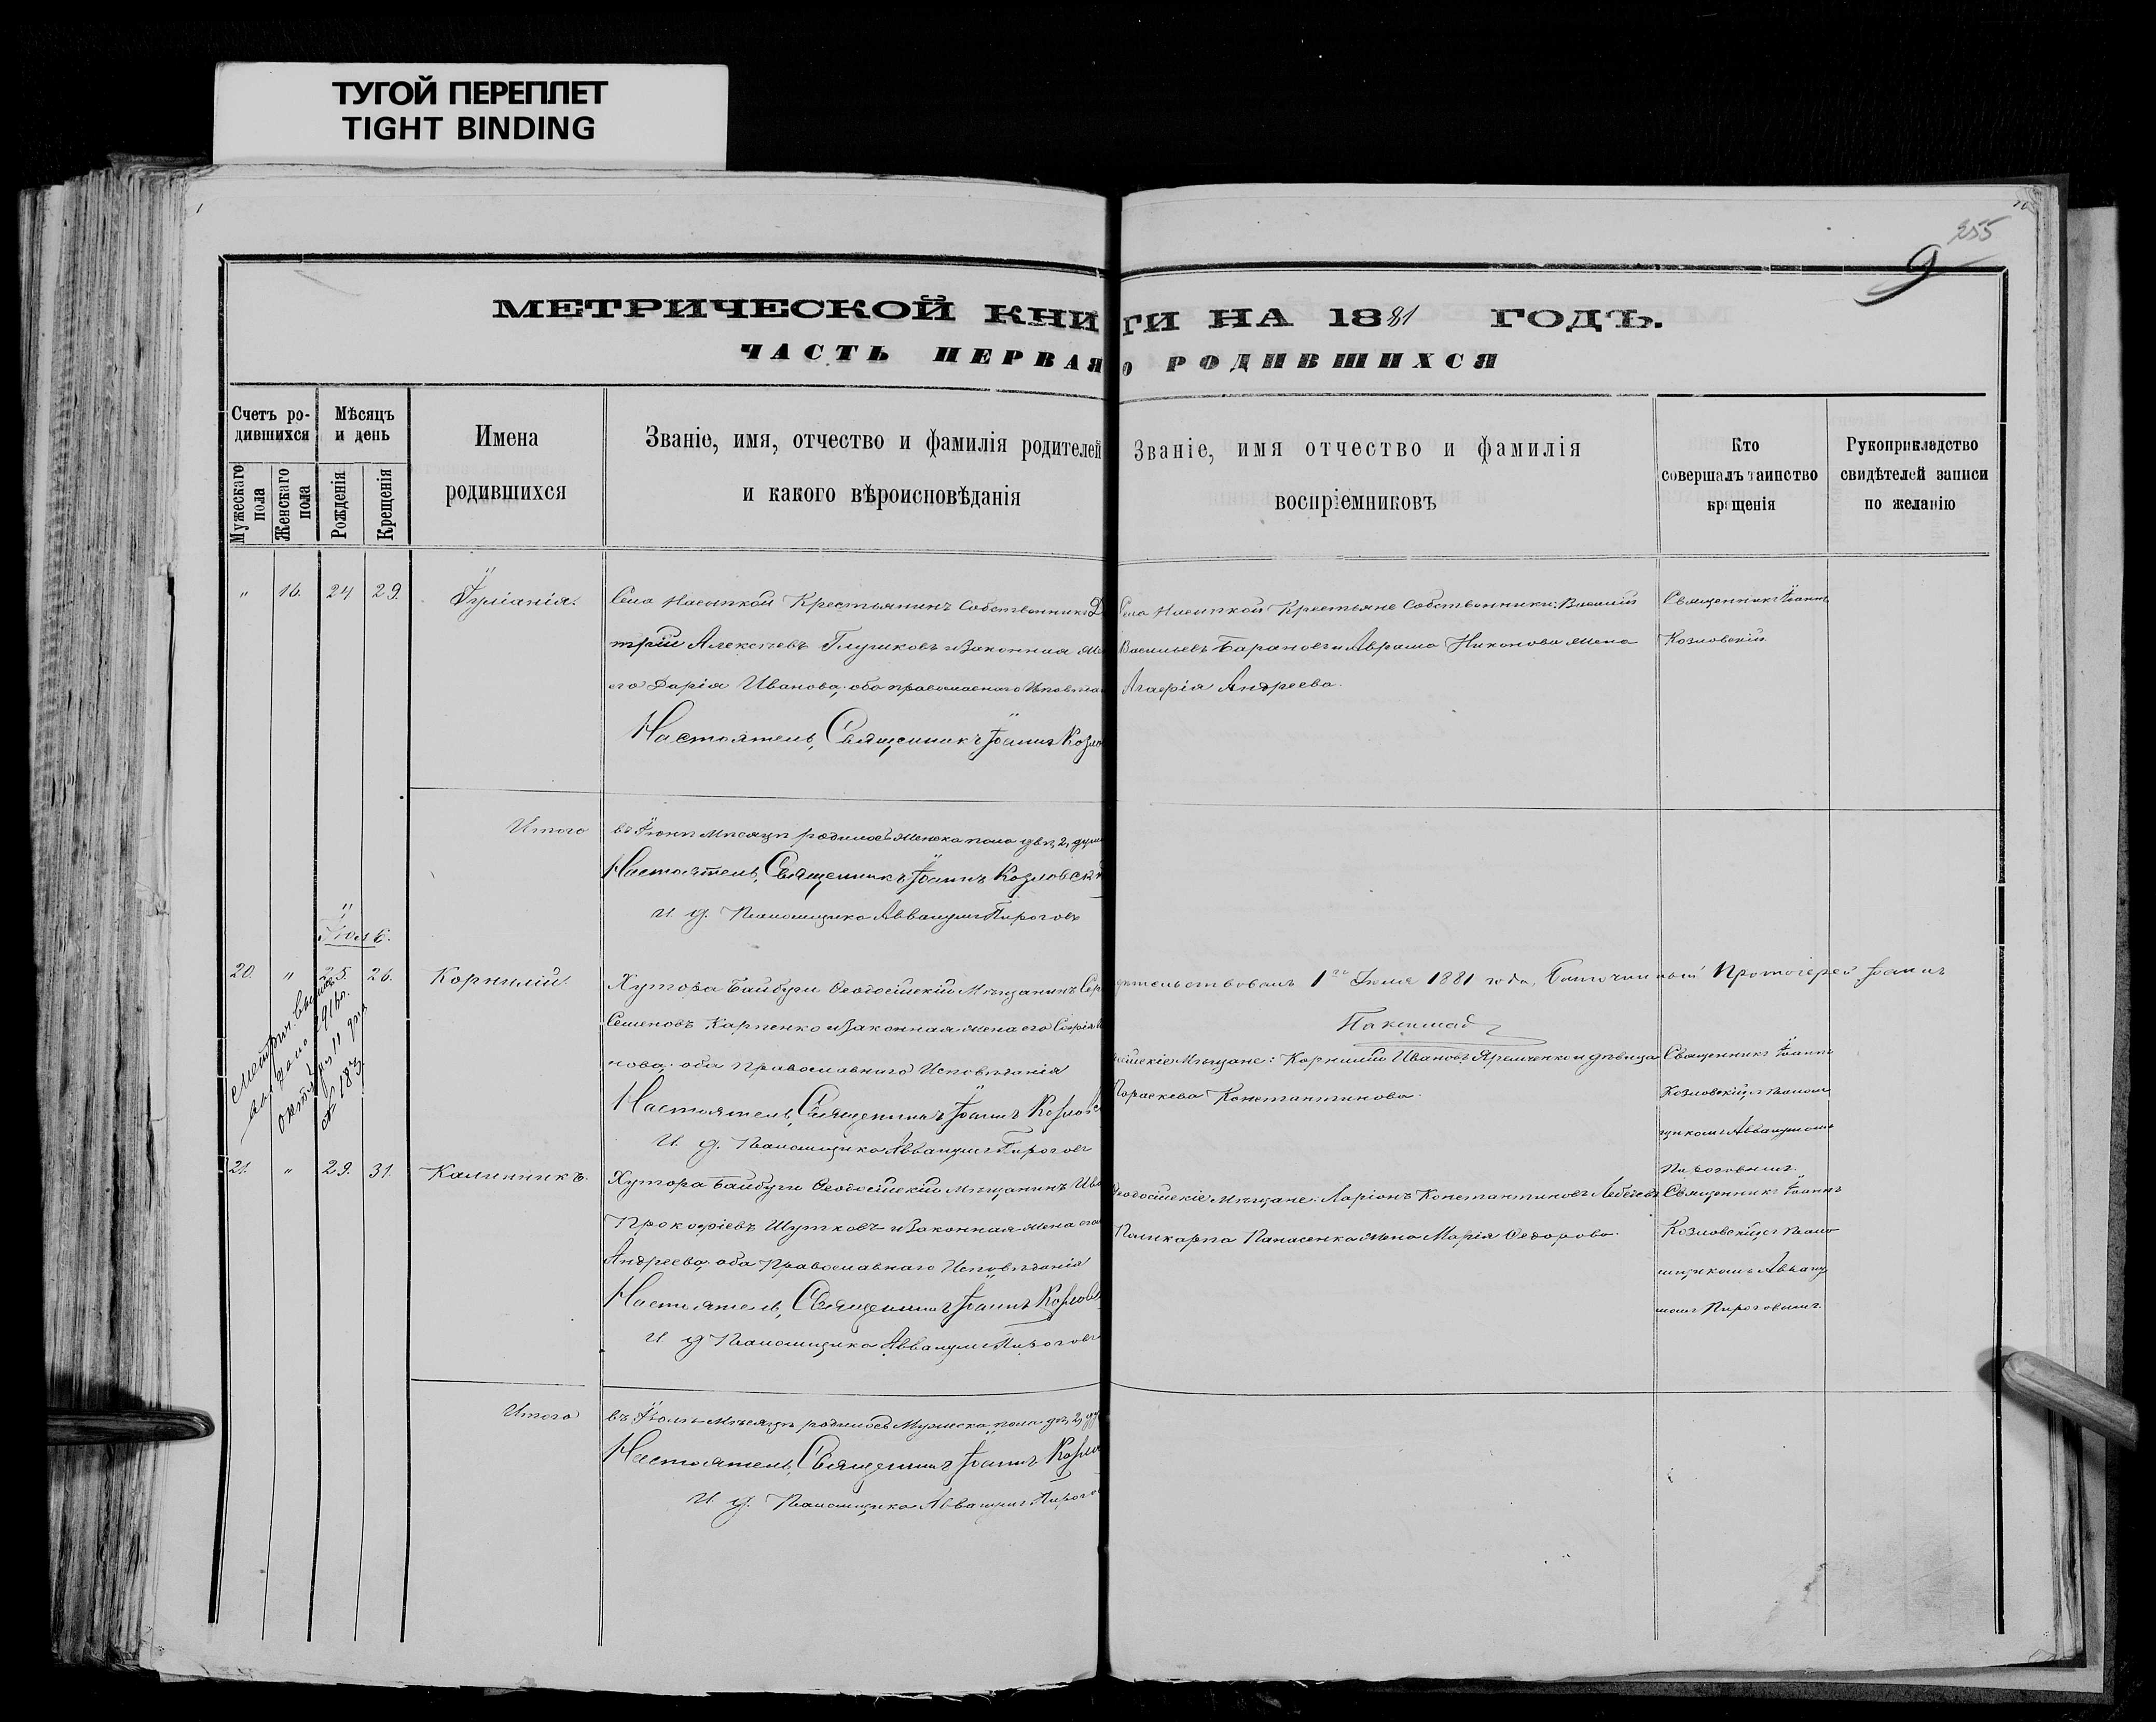 ТУГОЙ ПЕРЕПЛЕТ
TIGHT BINDING
255
9
МЕТРИЧЕСКОЙ КНИГИ НА 1881 ГОДЪ.
ЧАСТЬ ПЕРВАЯ О РОДИВШИХСЯ
Счетъ ро-
дившихся
Мужескаго пола
Женскаго пола
Мѣсяцъ
и день
Рожденія
Крещенія
Имена
родившихся
Званіе, имя, отчество и фамилія родителей
и какого вѣроисповѣданія
Званіе, имя отчество и фамилія
воспріемниковъ
Кто
совершалъ таинство
крещенія
Рукоприкладство
свидѣтелей записи
по желанію
" 16. 24 29. Іуліанія.
Села Насыпкой Крестьянинъ Собственникъ Д
трій Алексѣевъ Глушковъ и Законная же
его Дарія Иванова, оба православнаго Исповѣда
Настоятель, Священникъ Іоаннъ Козло
Села Насыпкой Крестьяне Собственники: Василій
Васильевъ Барановъ и Аврама Никонова жена
Агафія Андреева.
Священникъ Іоаннъ
Козловскій
Итого
въ Іюнѣ Мѣсяцѣ родилось женска пола двѣ, 2, души
Настоятель, Священникъ Іоаннъ Козловскі
И. д. Псаломщика Аввакумъ Пироговъ
Іюль.
20. " 25. 26. Корнилій.
Хутора Байбуги Ѳеодосійскій Мѣщанинъ Сер
Семеновъ Карпенко и Законная жена его Софія
нова, оба Православнаго Исповѣданія
Настоятель, Священникъ Іоаннъ Козловс
И. д. Псаломщика Аввакумъ Пироговъ
Метрич. выпись
выдана 1916 г.
Октября 11 дня
№ 183.
дѣтельствовалъ 1го Іюля 1881 года, Благочинный Протоіерей Іоаннъ
сійскіе Мѣщане: Корнилій Ивановъ Яременко и дѣвица
Параскева Константинова.
Священникъ Іоаннъ
Козловскій, съ Псалом
щикомъ Аввакумомъ
Пироговымъ.
21. " 29. 31. Калинникъ.
Хутора Байбуги Ѳеодосійскій Мѣщанинъ Ива
Прокофіевъ Шутковъ и Законная жена его
Андреева, оба Православнаго Исповѣданія
Настоятель, Священникъ Іоаннъ Козловс
И д Псаломщика Аввакумъ Пироговъ
Ѳеодосійскіе Мѣщане: Ларіонъ Константиновъ Лебедевъ
Поликарпа Панасенка жена Марія Ѳедорова.
Священникъ Іоаннъ
Козловскій, съ Псало
мщикомъ Авваку
момъ Пироговымъ.
Итого
въ Іюлѣ Мѣсяцѣ родилось Мужеска пола двѣ, 2, ду
Настоятель, Священникъ Іоаннъ Козло
И. д. Псаломщика Аввакумъ Пирого